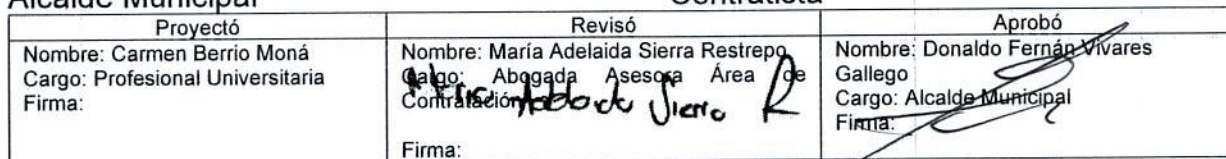 Alcalde Municipal
Contratista
Proyectó
Revisó
Aprobó
Nombre: Carmen Berrio Moná
Cargo: Profesional Universitaria
Firma:
Nombre: María Adelaida Sierra Restrepo
Cargo: Abogada Asesora Área de
Contratación
Firma:
Nombre: Donaldo Fernán Vivares
Gallego
Cargo: Alcalde Municipal
Firma: